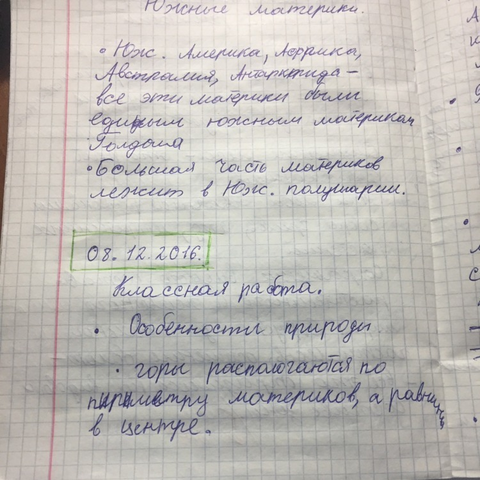 Южные материки.
• Юж. Америка, Африка,
Австралия, Антарктида –
все эти материки были
единым южным материкам
Голдыла
• Большая часть материков
лежит в Юж. полушарии.
08.12.2016.
Классная работа.
• Особенности природы
• горы распалогаются по
пириметру материков, а равнины
в центре.